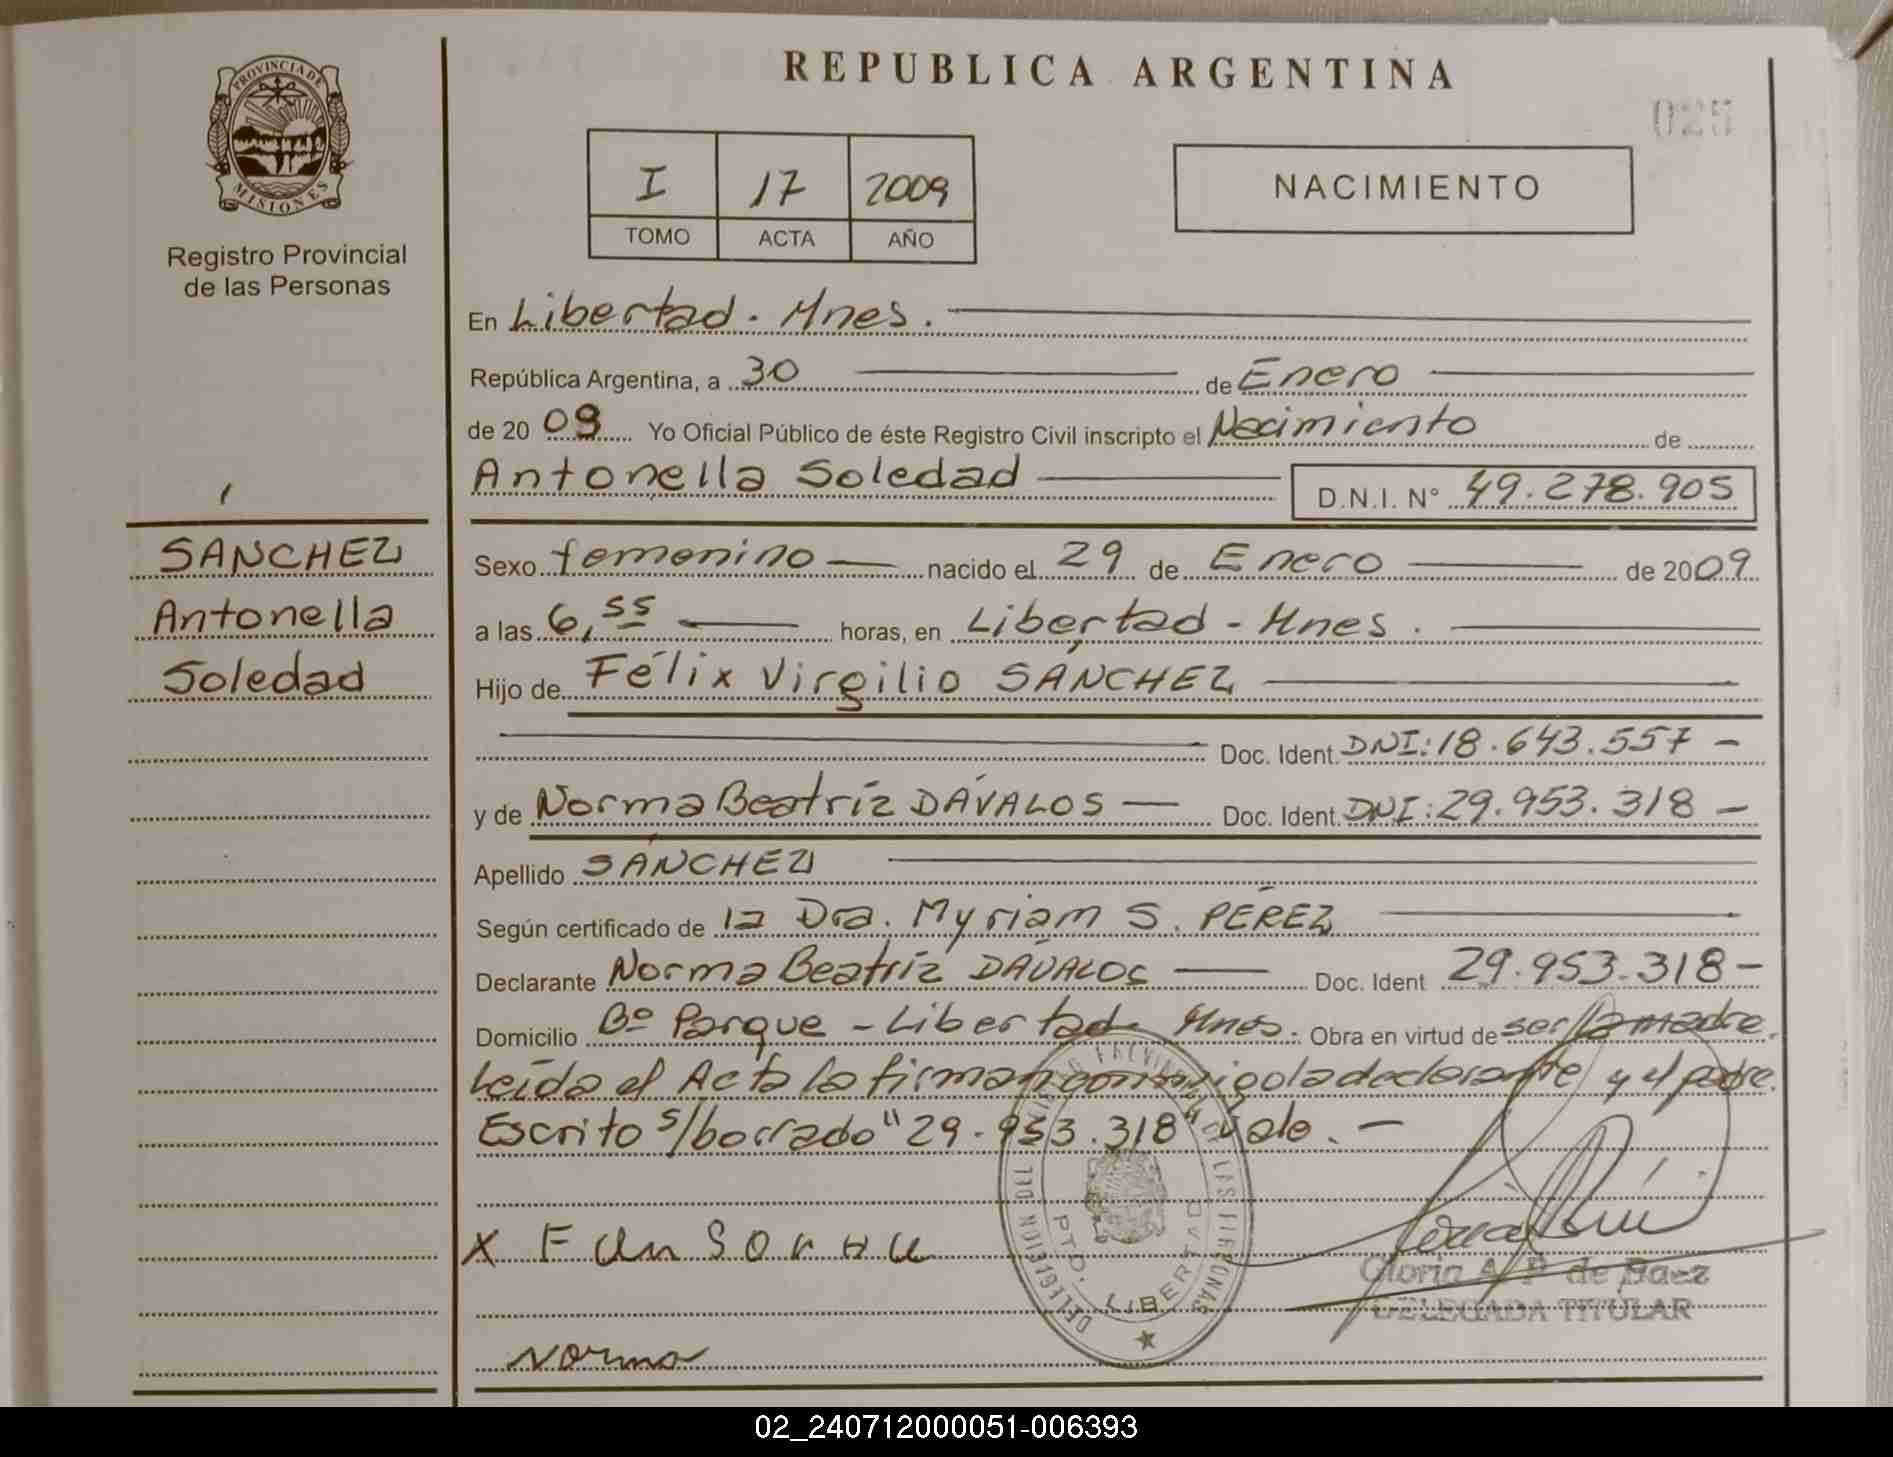 REPUBLICA ARGENTINA
025
PROVINCIA DE
MISIONES
Registro Provincial
de las Personas
I 17 2009
TOMO ACTA AÑO
NACIMIENTO
En Libertad - Mnes.
República Argentina, a 30 de Enero
de 20 09 Yo Oficial Público de éste Registro Civil inscripto el Nacimiento de
Antonella Soledad D.N.I. N° 49.278.905
SÁNCHEZ
Antonella
Soledad
Sexo femenino nacido el 29 de Enero de 2009
a las 6,55 horas, en Libertad - Mnes.
Hijo de Félix Virgilio SÁNCHEZ
Doc. Ident. DNI: 18.643.557 -
y de Norma Beatríz DÁVALOS Doc. Ident. DNI: 29.953.318 -
Apellido SÁNCHEZ
Según certificado de la Dra. Myriam S. PÉREZ
Declarante Norma Beatríz DÁVALOS Doc. Ident 29.953.318 -
Domicilio Bº Parque - Libertad - Mnes. Obra en virtud de ser la madre.
Leída el Acta la firman conmigo la declarante y el padre.
Escrito s/borrado "29.953.318" Vale. -
DELEGACION DEL REGISTRO PROVINCIAL DE LAS PERSONAS
PTO. LIBERTAD
X
Gloria A. P. de Baez
DELEGADA TITULAR
Norma
02_240712000051-006393